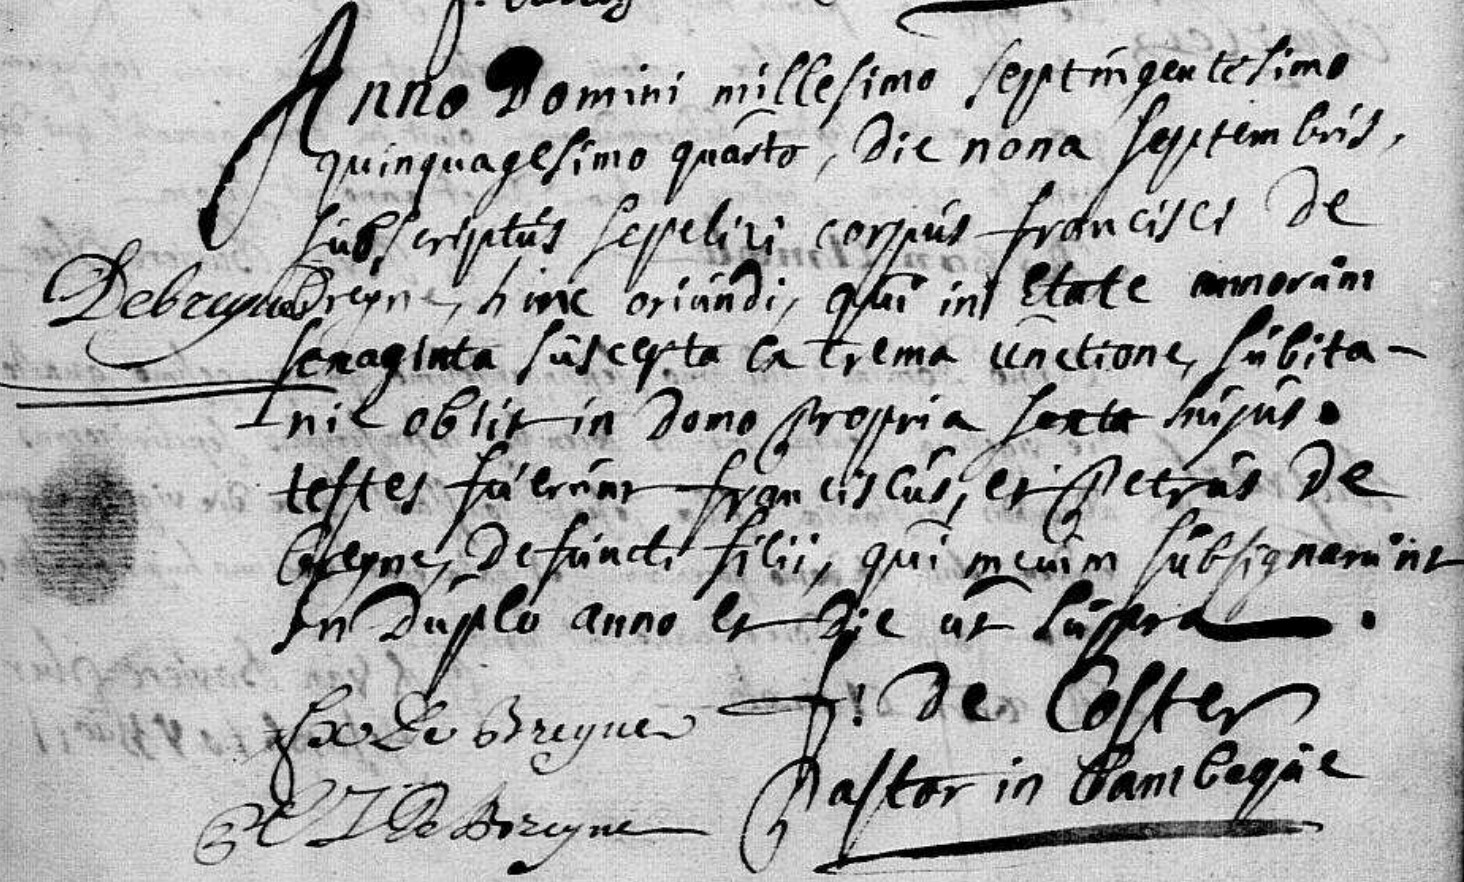 Anno Domini millesimo septingentesimo
quinquagesimo quarto, die nona septembris,
subscriptus sepelivi corpus francisci de
Debreyne
breyne, hinc oriundi, qui in etate annorum
sexaginta suscepta extrema unctione, subita-
nie obiit in domo propria sexta hujus.
testes fuerunt franciscus, et Petrus de
breyne, defuncti filii, qui mecum subsignarunt
in duplo anno et die ut supra.
fx De Breyne
f: de Coster
De Breyne
Pastor in Bambeque